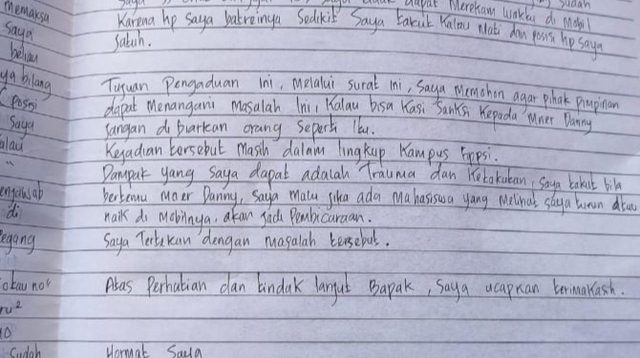 memaksa
saya
beliau
ya bilang
posisi
saya
alau
di
egang
ru²
10
sudah
sudah
dapat Merekam waktu di Mobil
Karena hp saya batreinya Sedikit Saya takut Kalau Mati dan posisi hp saya
Jatuh.
Tujuan Pengaduan Ini, Melalui Surat Ini, Saya Memohon agar pihak pimpinan
dapat Menangani Masalah Ini, Kalau bisa Kasi Sanksi Kepada Mner Danny
Jangan di biarkan orang Seperti Itu.
Kejadian tersebut Masih dalam lingkup Kampus Fippsi.
Dampak yang Saya dapat adalah Trauma dan Ketakutan, Saya takut bila
bertemu Mner Danny, Saya Malu jika ada Mahasiswa yang Melihat saya turun atau
naik di Mobilnya, akan Jadi Pembicaraan.
Saya Tertekan dengan Masalah tersebut.
Atas Perhatian dan tindak lanjut Bapak, Saya ucapkan terimakasih.
Hormat Saya